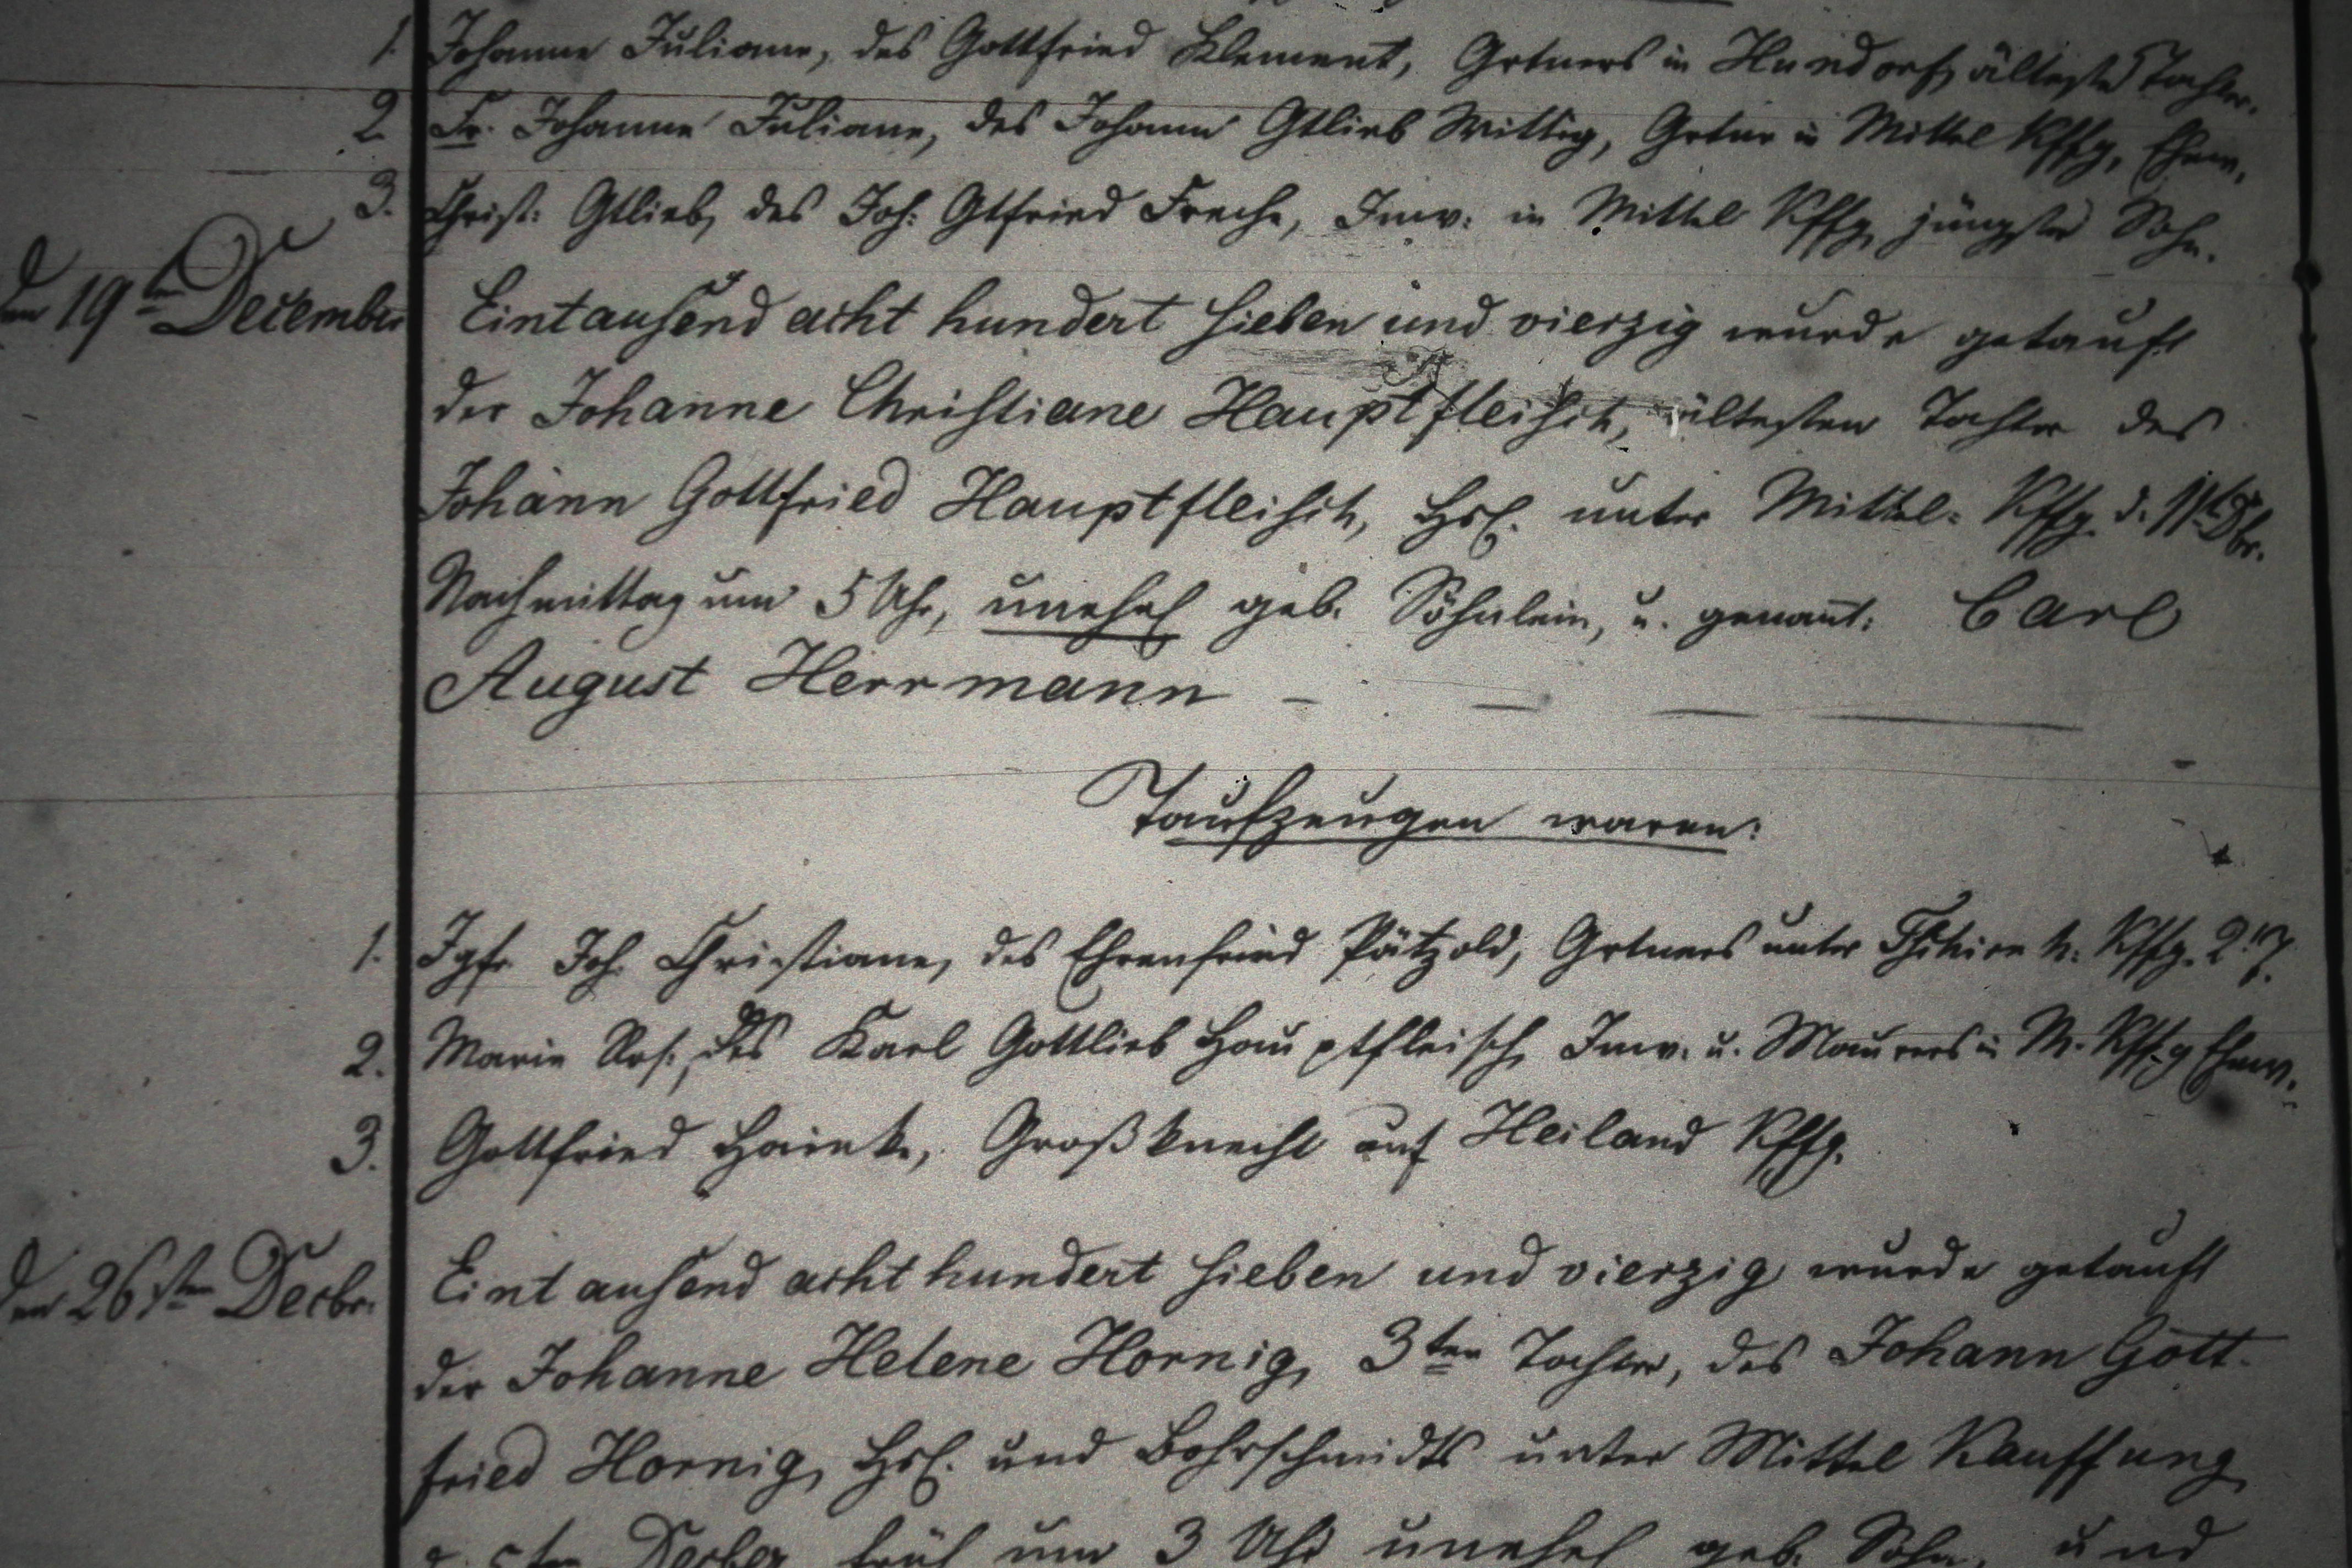 1. Johanne Juliane, des Gottfried Klement, Grtners in Hundorf, älteste Tochter.
2. Fr. Johanne Juliane, des Johann Gtlieb Wittig, Grtner in Mittel Kffg, Ehew.
3. Christ: Gtlieb, des Joh: Gtfried Freche, Inw: in Mittel Kffg, jüngster Sohn.
den 19ten December Eintausend acht hundert sieben und vierzig wurde getauft
der Johanne Christiane Hauptfleisch, ältesten Tochter des
Johann Gottfried Hauptfleisch, Hsl. unter Mittel- Kffg. d. 11t Dbr.
Nachmittag um 5 Uhr, unehel geb. Söhnlein, u. genant: Carl
August Herrmann –
Taufzeugen waren:
1. Jgfr. Joh. Christiane, des Ehrenfried Pätzold, Grtners unter Kffg. 2t T.
2. Marie Ros:, des Karl Gottlieb Hauptfleisch, Inw. u. Maurers in M. Kffg Ehew.
3. Gottfried Heinke, Großknecht auf Heiland Kffg.
den 26sten Decbr. Eintausend acht hundert sieben und vierzig wurde getauft
der Johanne Helene Hornig, 3ten Tochter, des Johann Gott-
fried Hornig, Hsl. und Bohrschmidts unter Mittel Kauffung
d. 5ten Decber früh um 3 Uhr unehel geb. Sohn, und